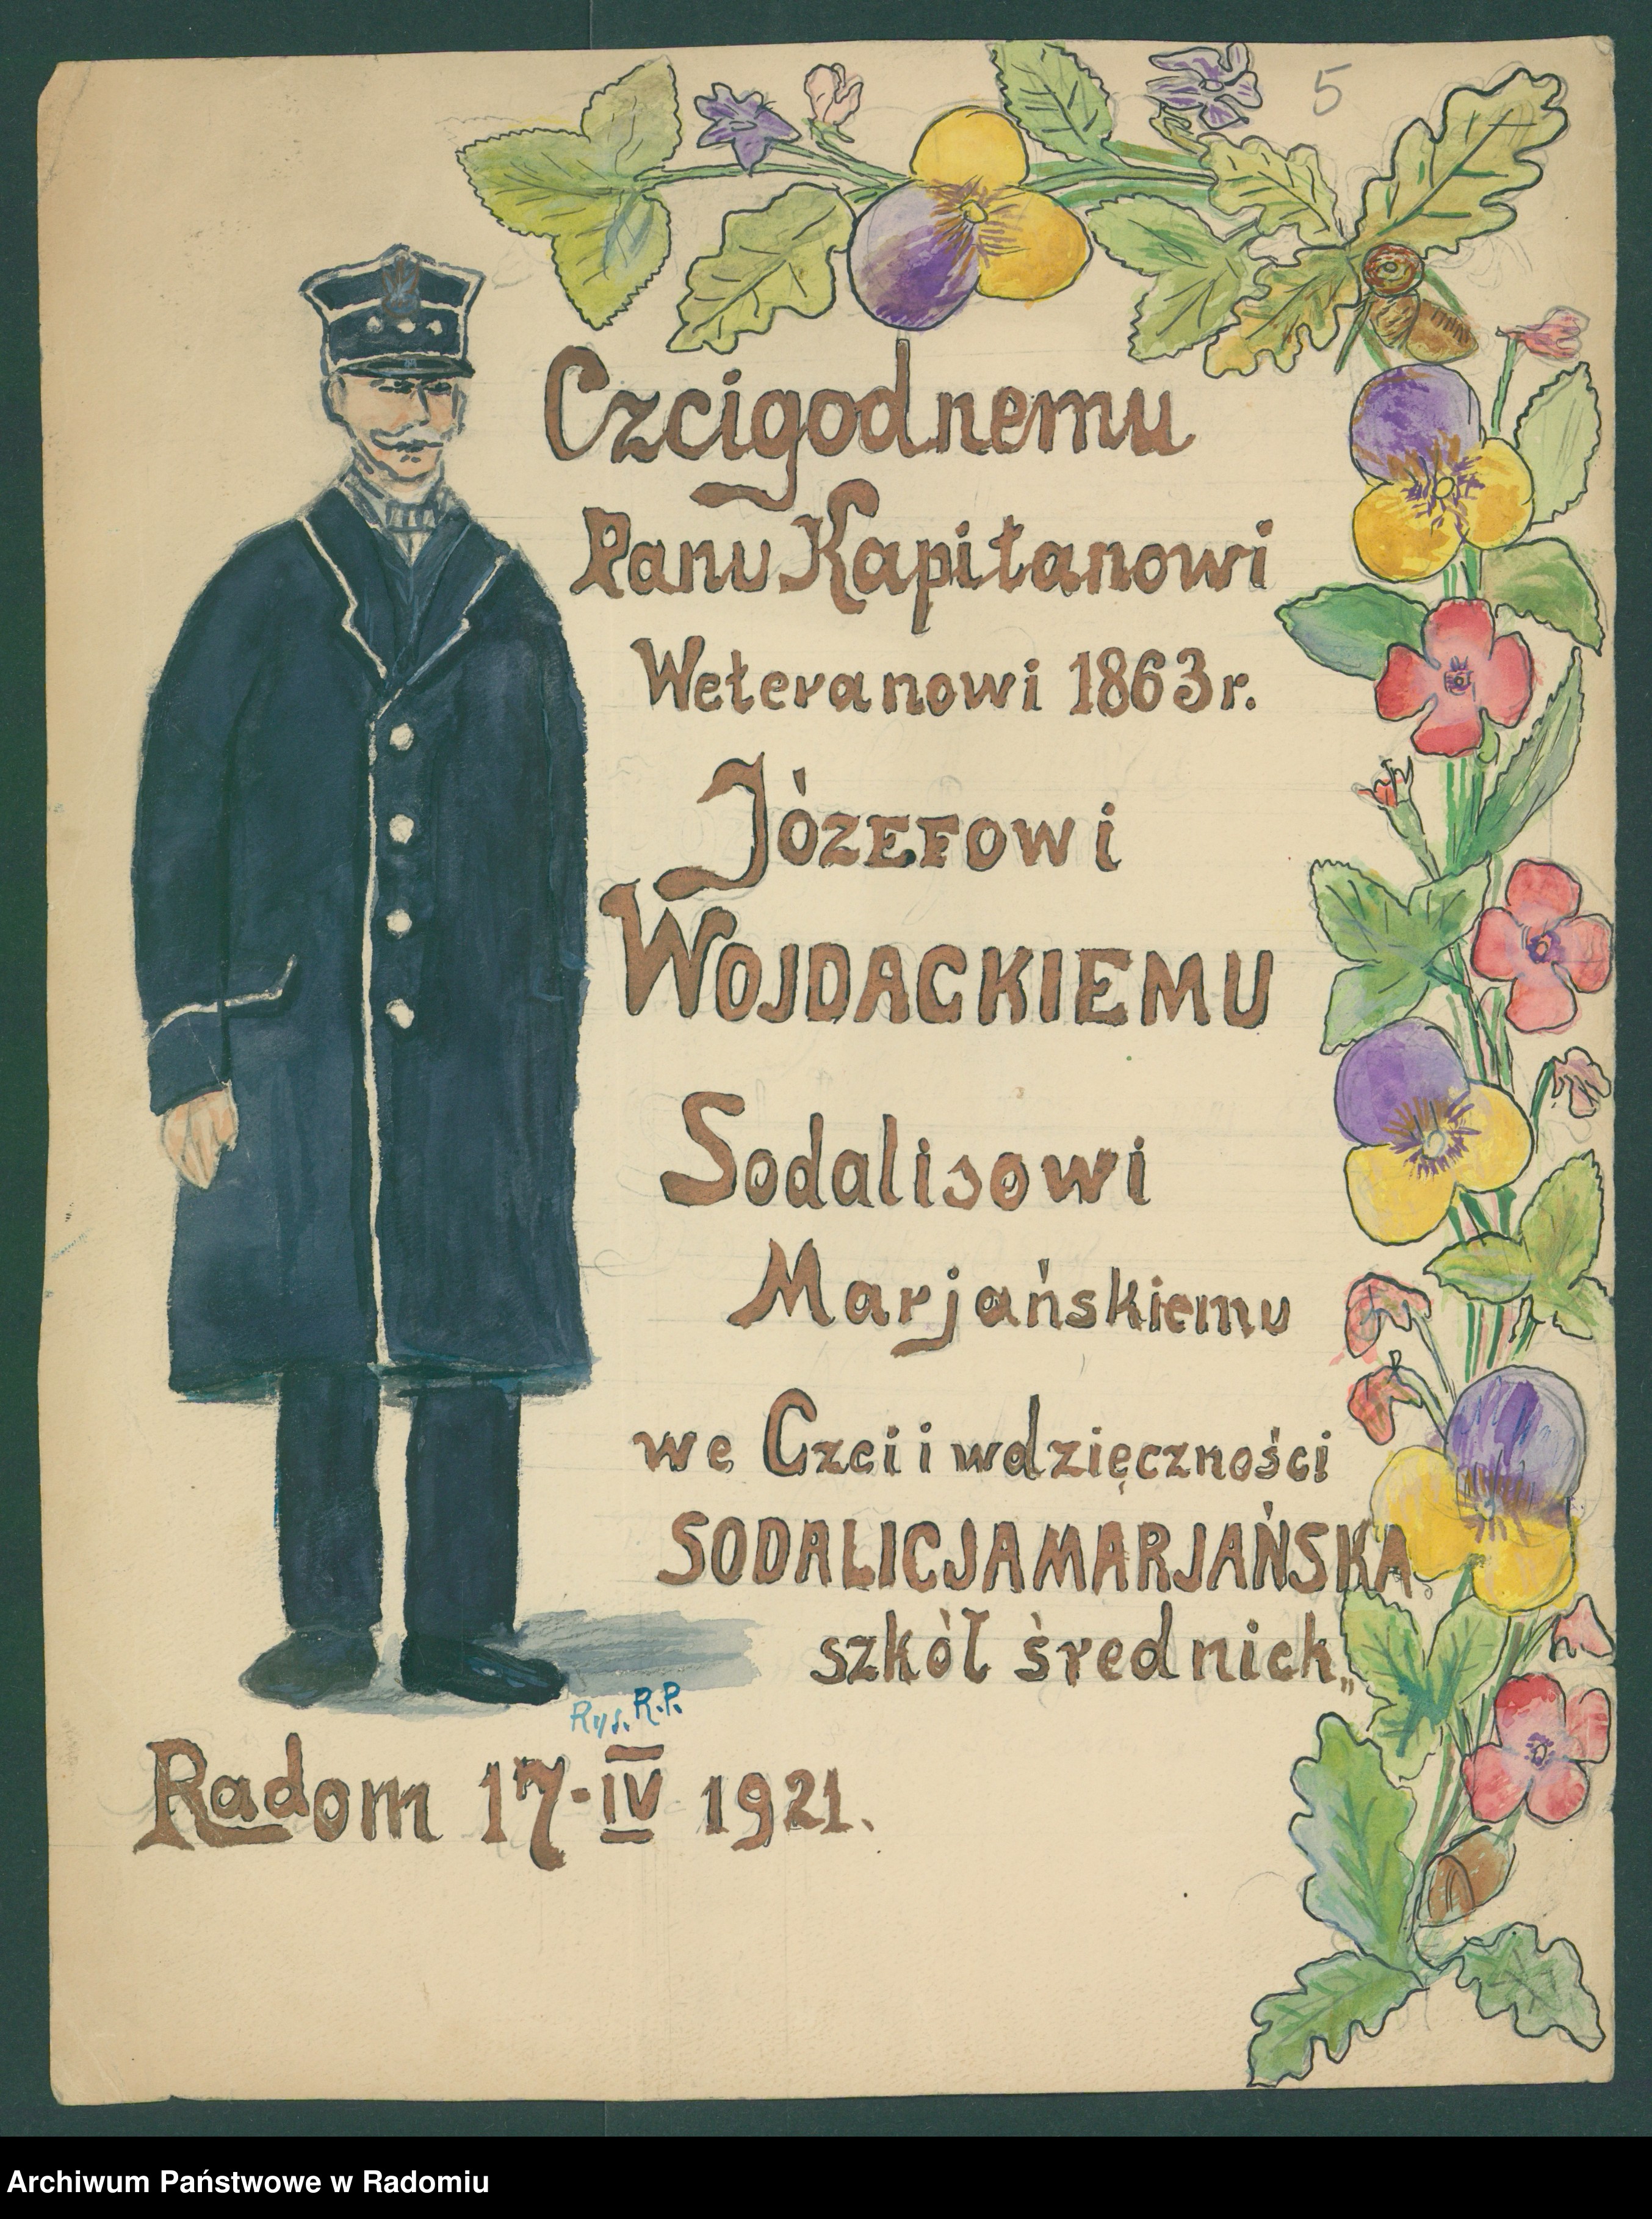 5
Czcigodnemu
Panu Kapitanowi
Weteranowi 1863 r.
Józefowi
WOJDACKIEMU
Sodalisowi
Marjańskiemu
we Czci i wdzięczności
SODALICJA MARJAŃSKA
szkół średnich„
Rys. R.P.
Radom 17-IV 1921.
Archiwum Państwowe w Radomiu